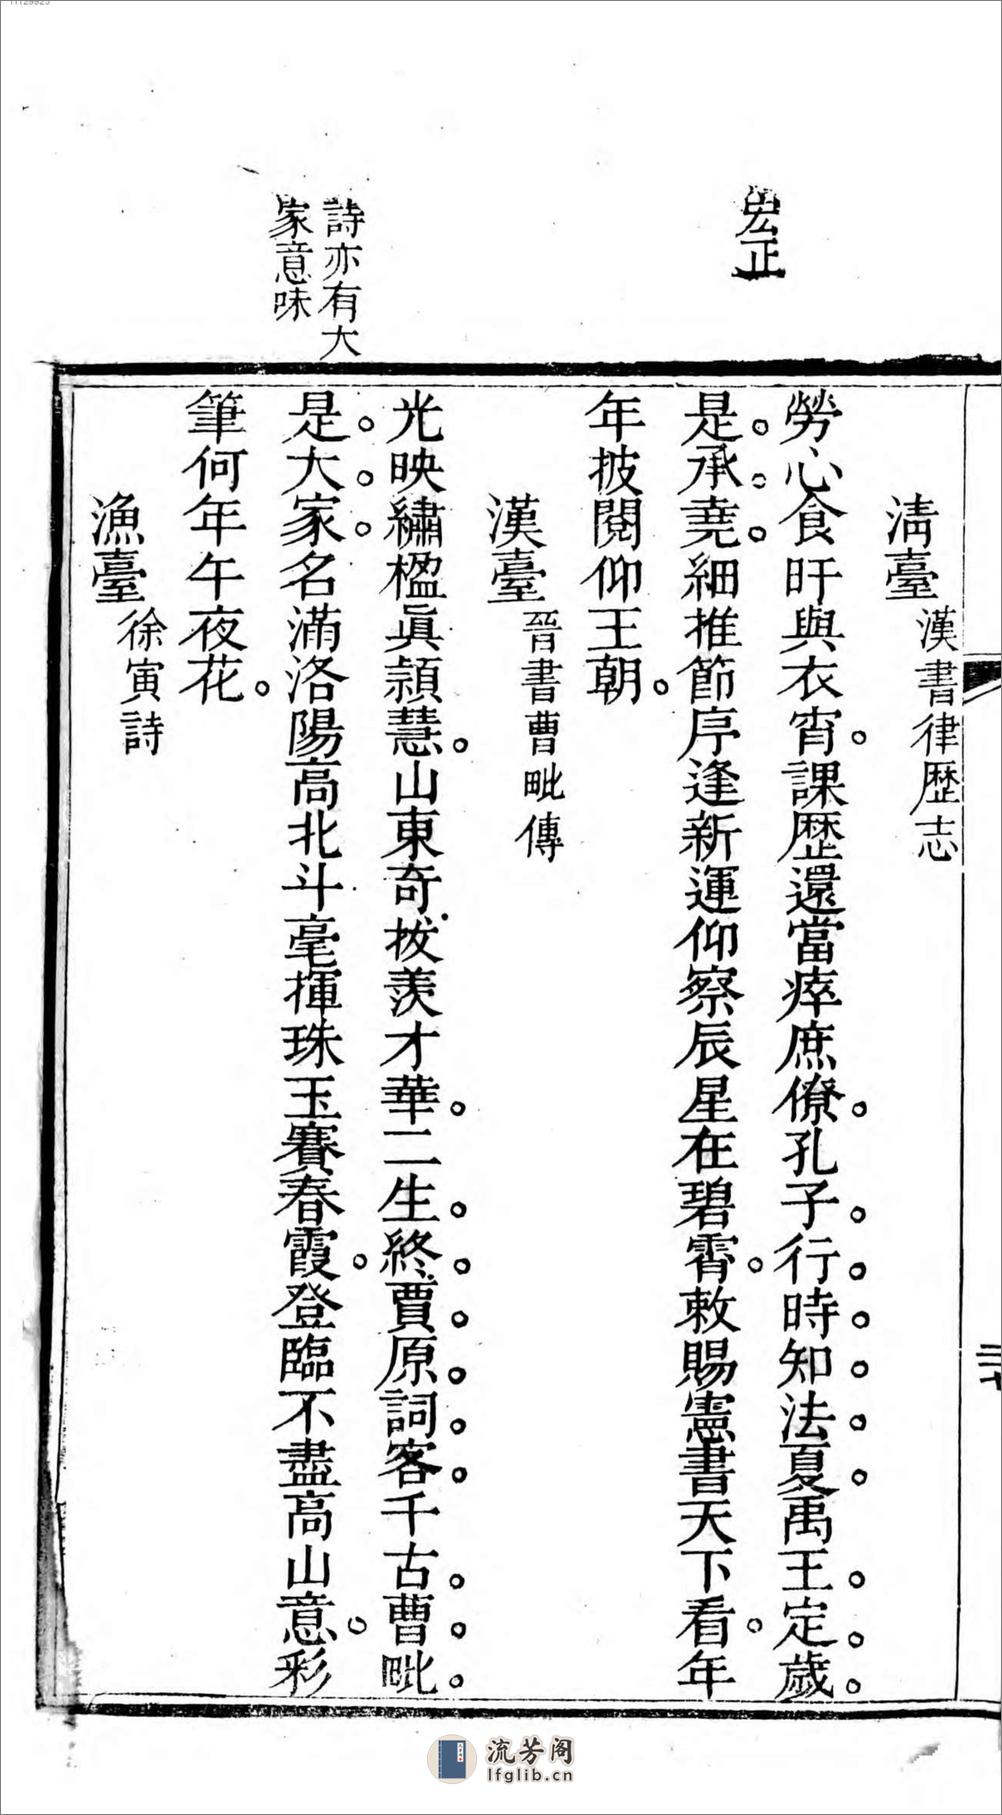 11129925
宏正
詩亦有大
家意味
清臺漢書律歷志
勞心食旰與衣宵課歷還當瘁庶僚孔子行時知法夏禹王定歲
是承堯細推節序逢新運仰察辰星在碧霄敕賜憲書天下看年
年披閱仰王朝
漢臺晉書曹毗傳
光映繡楹眞頴慧山東奇拔羨才華二生終賈原詞客千古曹毗
是大家名滿洛陽高北斗毫揮珠玉賽春霞登臨不盡高山意彩
筆何年午夜花
漁臺徐寅詩
二十
流芳阁
lfglib.cn